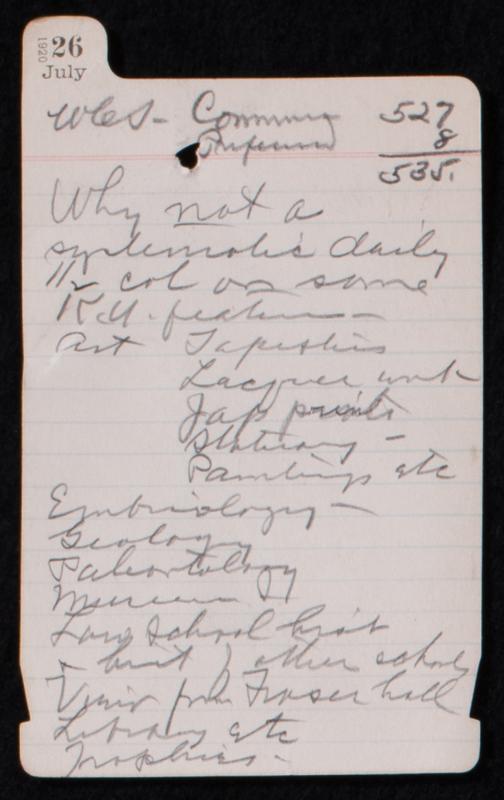 1920 26
July
WCS - Commun 527
8
535.
Why not a
systematic daily
1/2 col on some
K.U. feature -
Art Tapestries
Lacquer work
Jap prints
Statuary -
Paintings etc
Embriology -
Geology
Paleontology
Museum
Law School hist
- hist of other schools
View from Fraser hall
Library etc
Trophies -